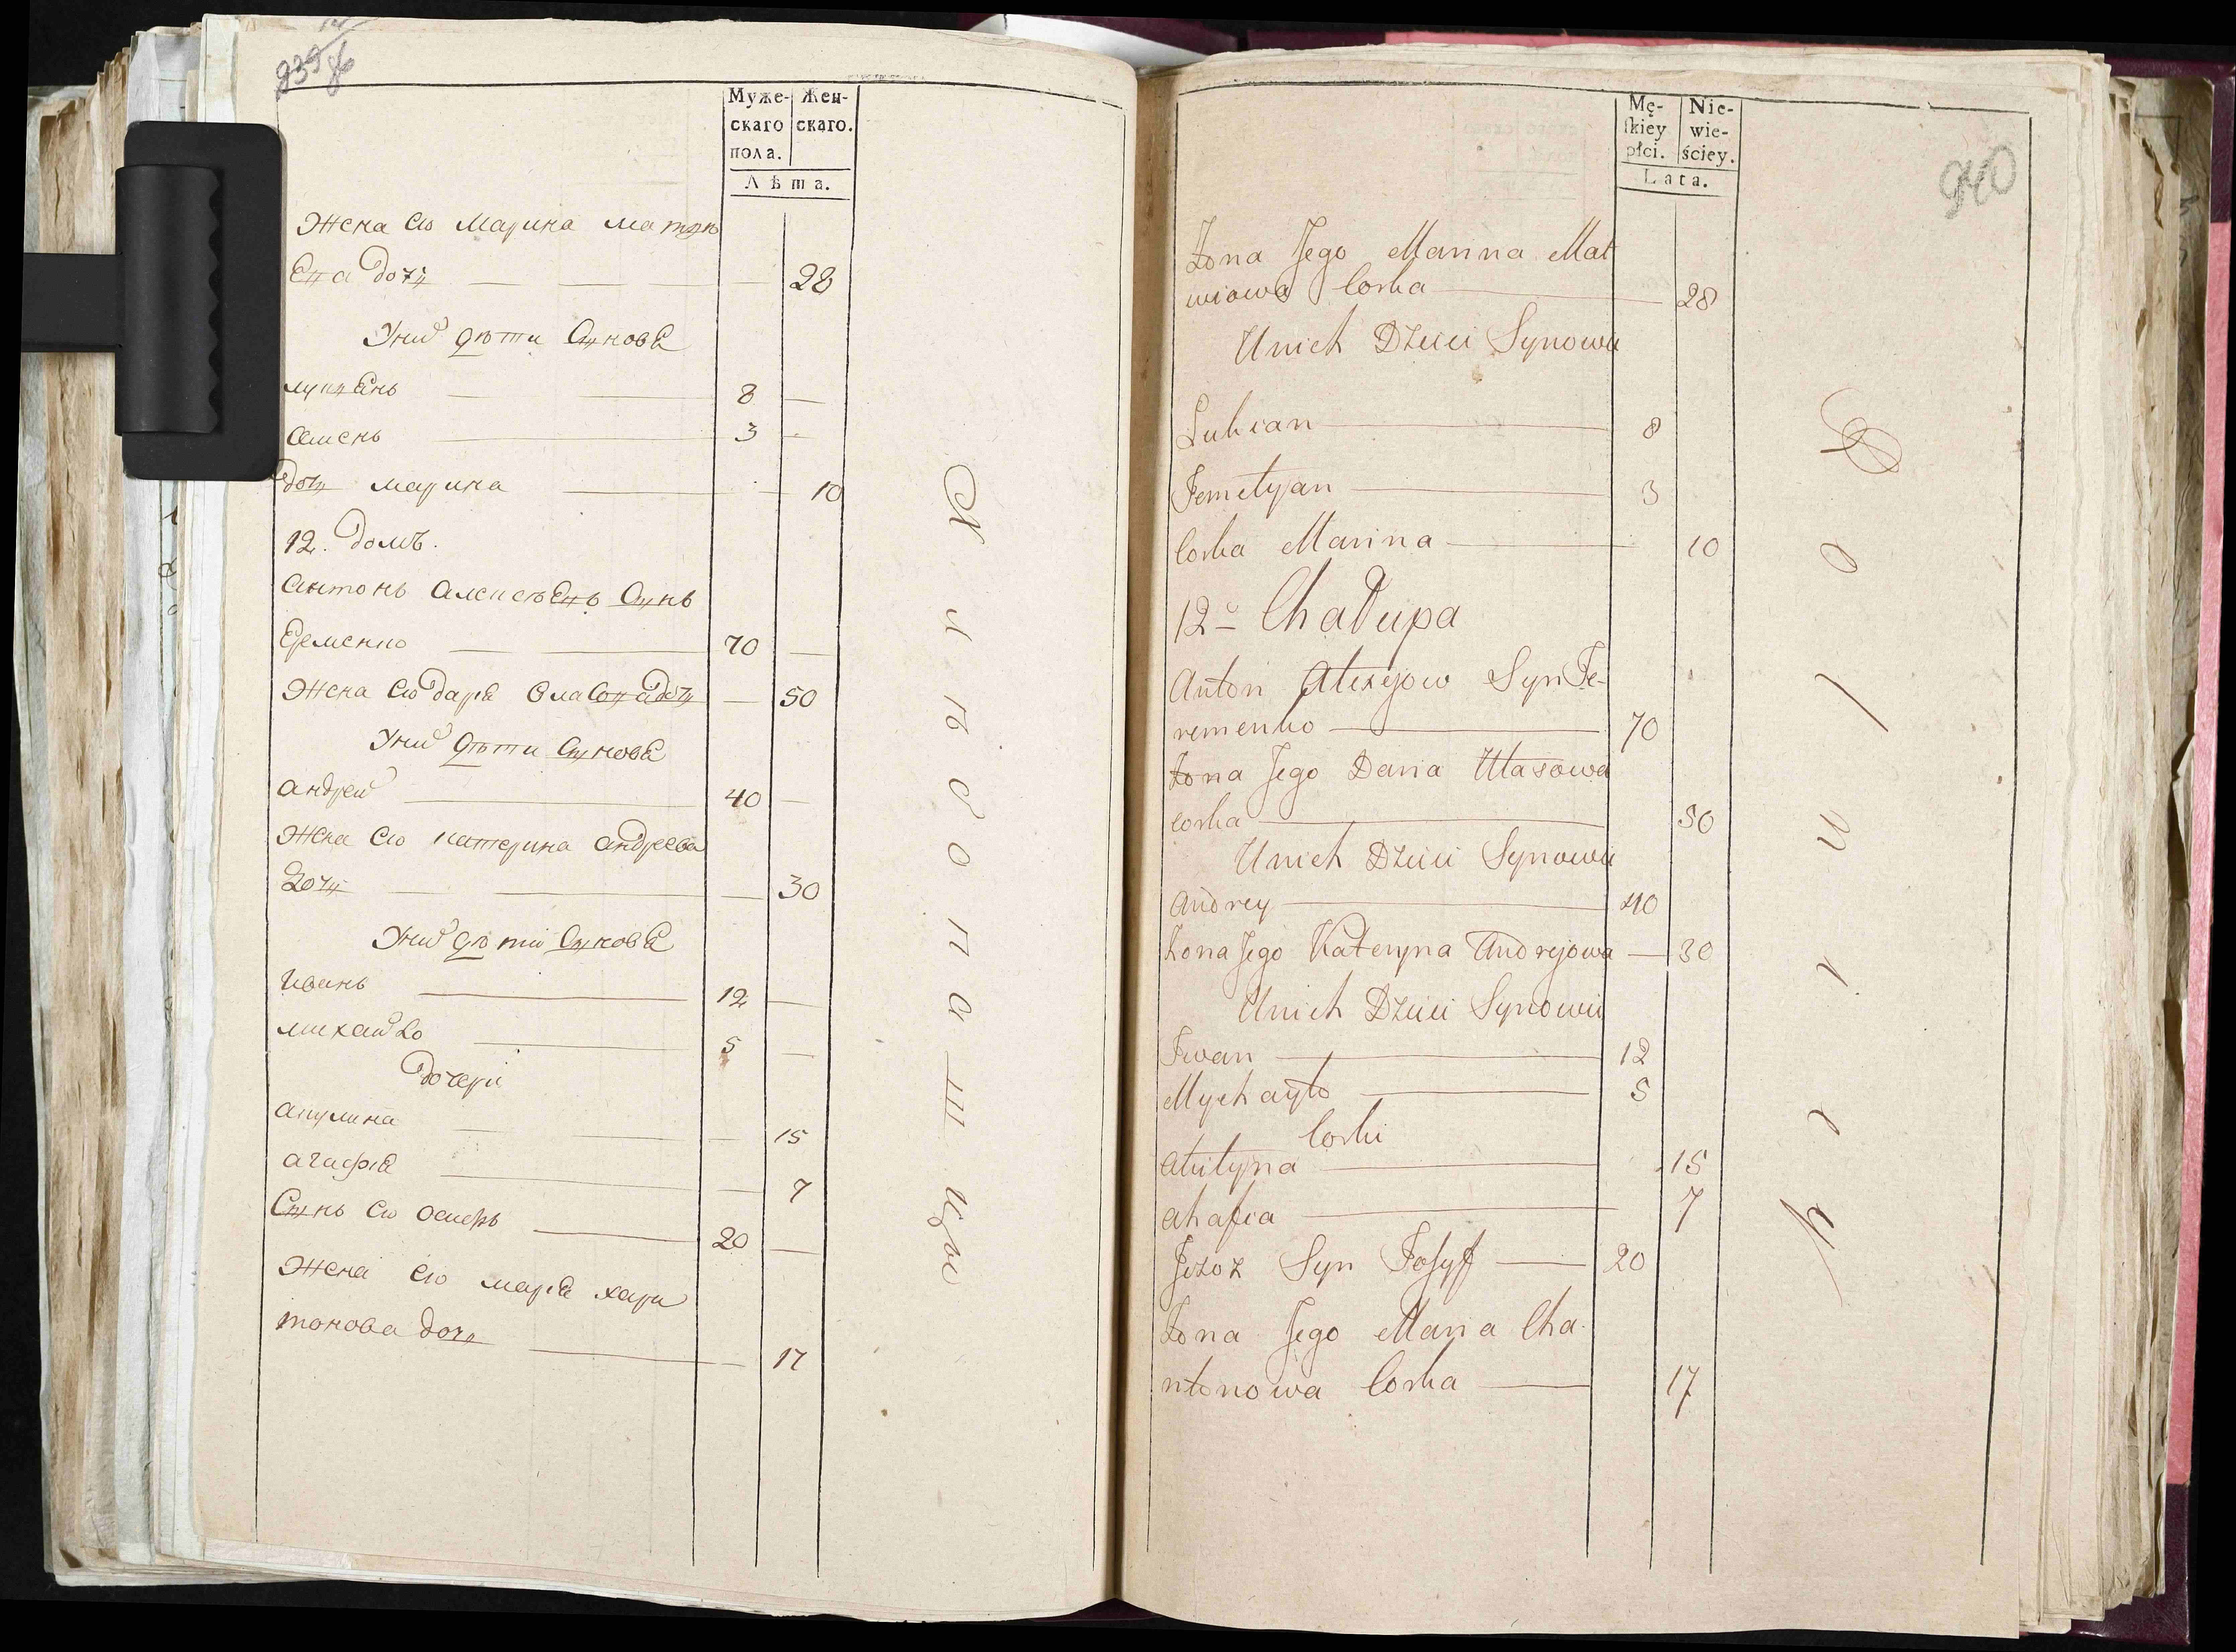 939
86
Муже-
скаго
пола.
Жен-
скаго.
Лѣта.
Жена его Марина матвѣ
ева дочь 28
У них дѣти Сынове
лукянъ 8
Семенъ 3
дочь марина 10
12. домъ.
антонъ алексѣевъ Сынъ
Еременко 70
Жена его дарья власова дочь 50
У них дѣти Сынове
андрей 40
Жена его катерина андреева
дочь 30
У них дѣти Сынове
иванъ 12
михайло 5
дочери
акулина 15
агафия 7
Сынъ его осифъ 20
Жена его марья хари
тонова дочь 17
Хлѣбопашцы
Mę-
ſkiey
płci.
Nie-
wie-
ściey.
Lata.
940
Żona Jego Marina Mat
wiowa Corka 28
Unich Dzieci Synowie
Lukian 8
Semetyan 3
Corka Marina 10
12 Chałupa
Anton Alexejow Syn Je-
remenko 70
Żona Jego Daria Własowa
corka 50
Unich Dzieci Synowie
Andrey 40
Żona Jego Kateryna Andrejowa 30
Unich Dzieci Synowie
Iwan 12
Mychayło 5
Corki
Akilyna 15
Ahafia 7
Jegoż Syn Josyf 20
Żona Jego Maria Cha-
rytonowa Corka 17
Rolnicy